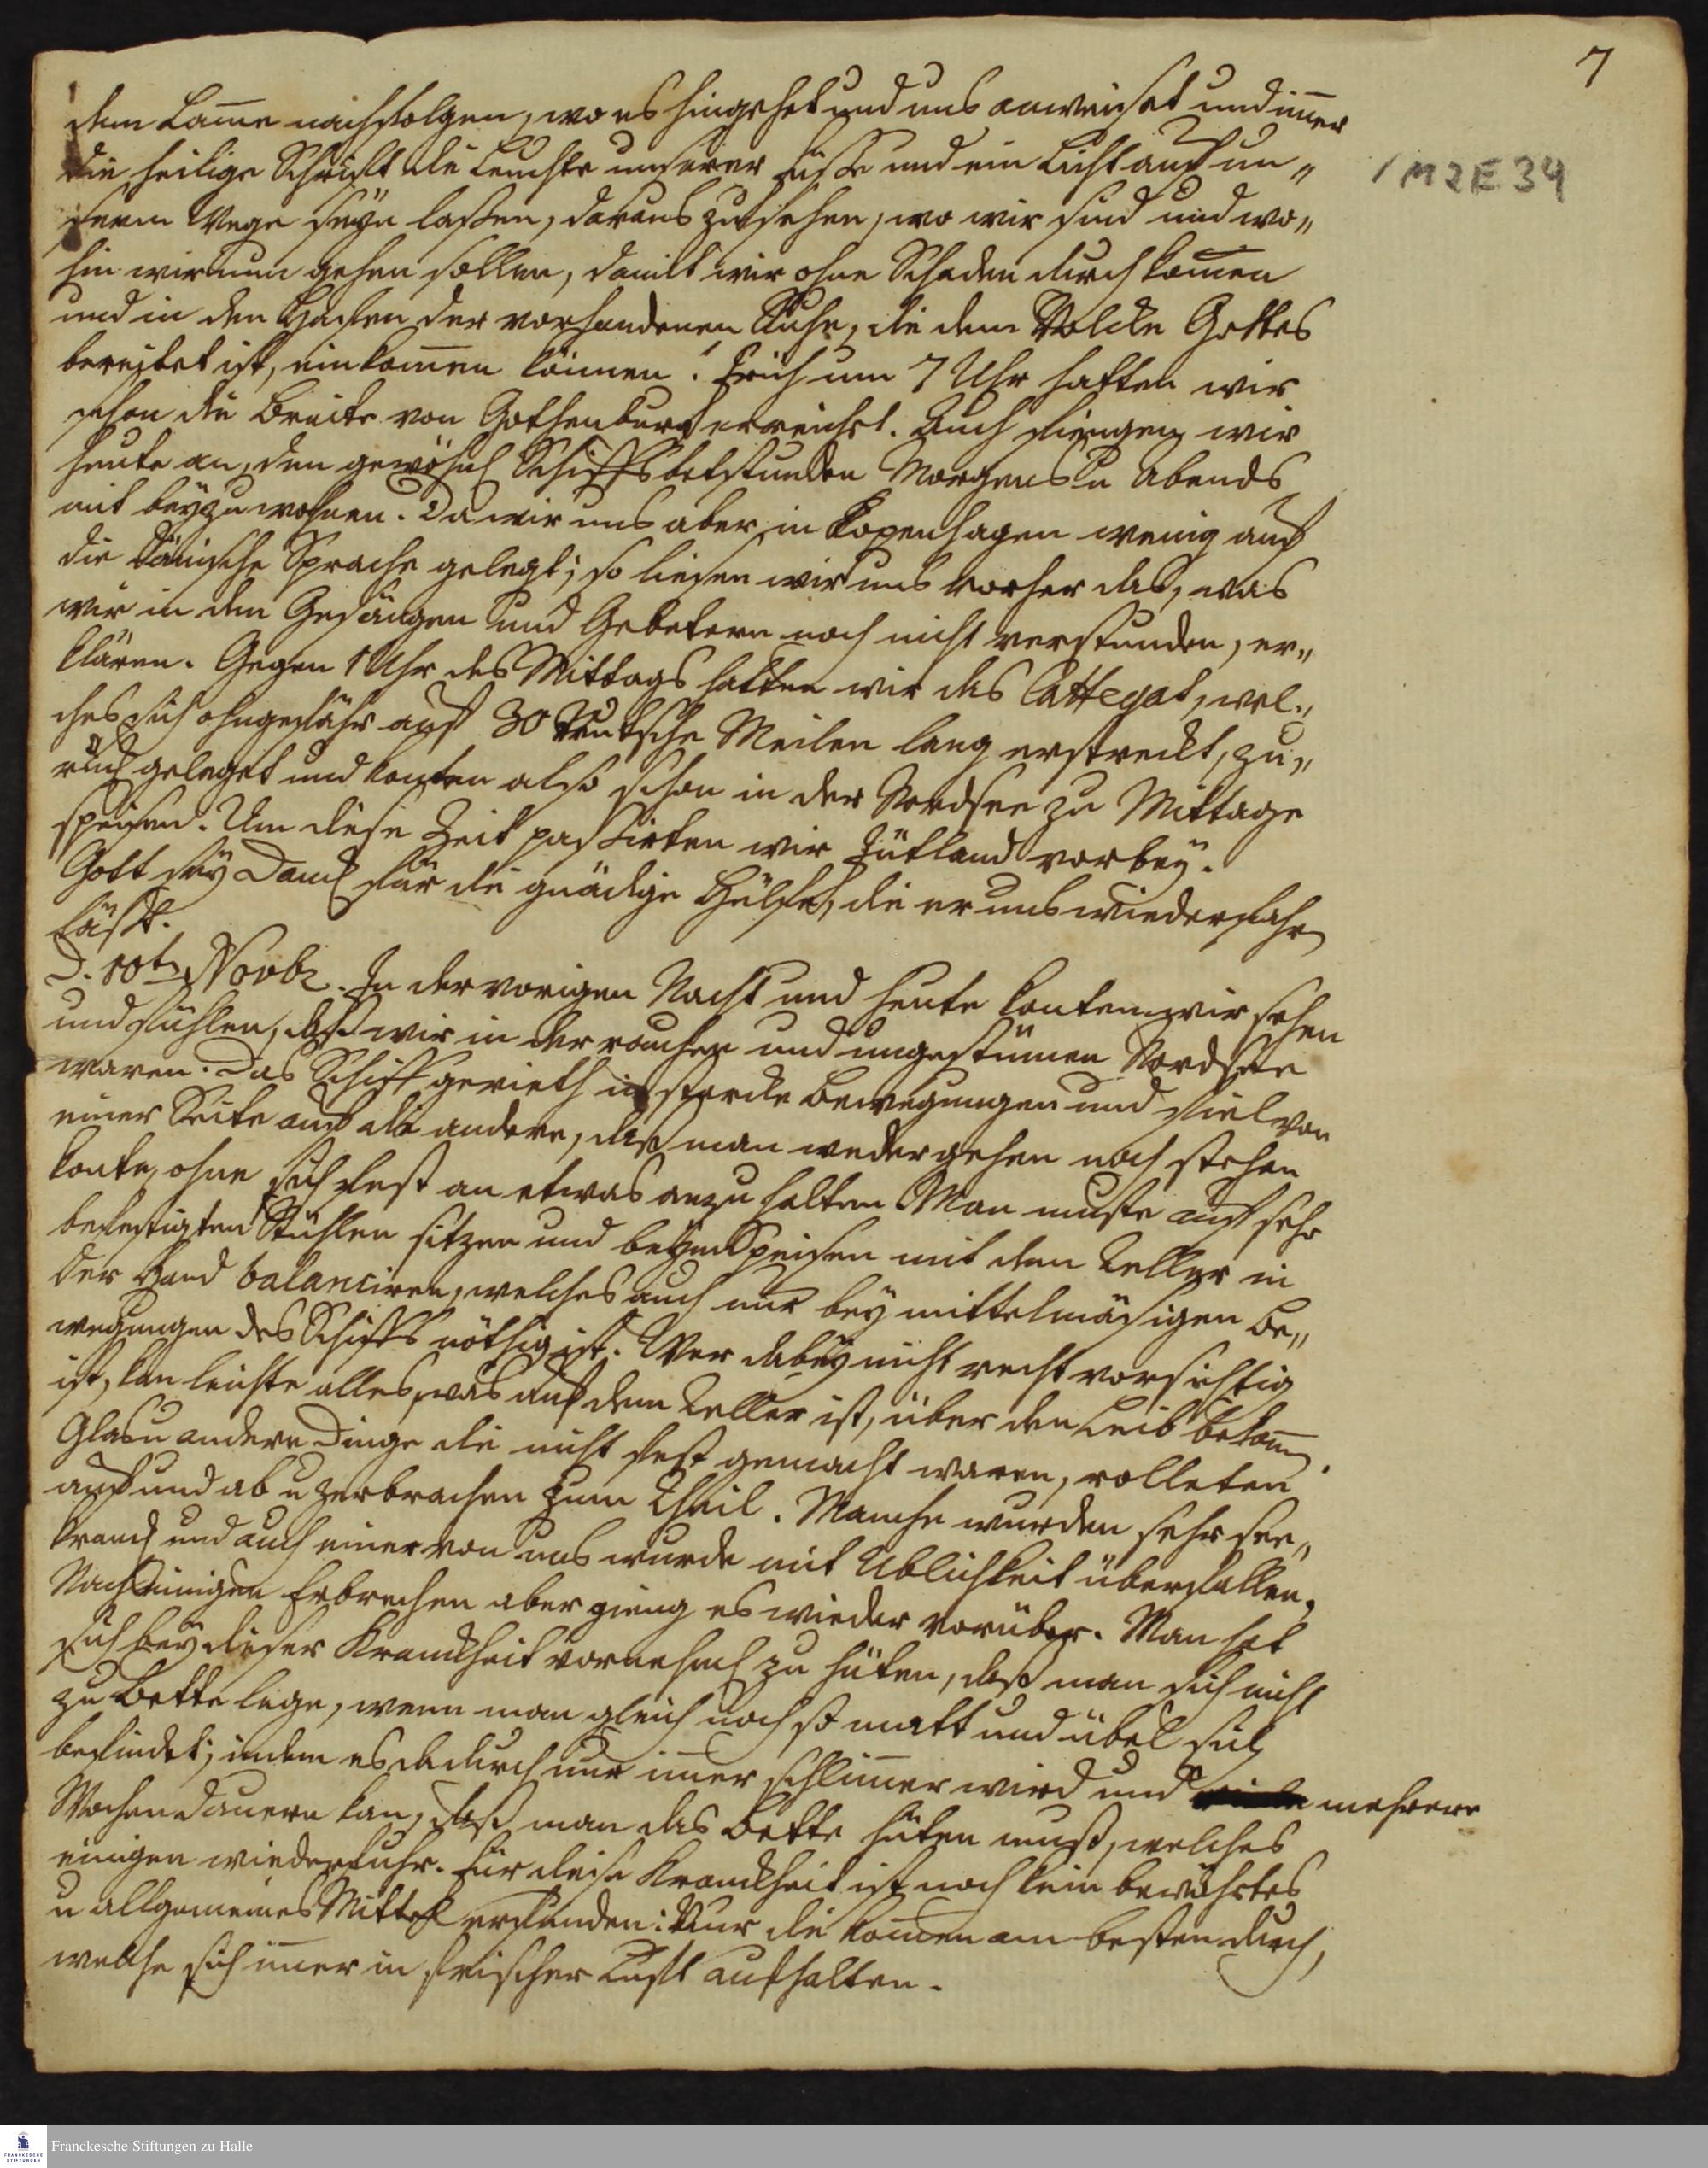 7
1 M 2 E 34
dem Lam̅e nachfolgen, wo es hingehet und uns anweiset und im̅er
die heilige Schrifft die Leuchte unserer Füsse und ein Licht auf un„
serm Wege seyn lassen, daraus zu sehen, wo wir sind und wo„
hin wir nun gehen sollen, damit wir ohne Schaden durchkom̅en
und in den Hafen der vorhandenen Ruhe, die dem Volcke Gottes
bereitet ist, einkom̅en können! Früh um 7 Uhr hatten wir
schon die Breite von Gothenburg erreicht. Auch fiengen wir
heute an, den gewöhnl Schiffsbetstunden Morgens u Abends
mit beyzuwohnen. Da wir uns aber in Kopenhagen wenig auf
die dänische Sprache gelegt; so liesen wir uns vorher das, was
wir in den Gesängen und Gebetern noch nicht verstunden, er„
klären. Gegen 1 Uhr des Mittags hatten wir das Cattegat, wel„
ches sich ohngefähr auf 30 teutsche Meilen lang erstreckt, zu„
rück geleget und konten also schon in der Nordsee zu Mittage
speisen. Um diese Zeit passirten wir Jütland vorbey.
Gott sey Danck für die gnädige Hülfe, die er uns wiederfahren
läßt.
D. 10ten Novbr. In der vorigen Nacht und heute konten wir sehen
und fühlen, daß wir in der rauhen und ungestümen Nordsee
waren. Das Schiff gerieth in starcke Bewegungen und fiel von
einer Seite auf die andere, daß man weder gehen noch stehen
konte, ohne sich fest an etwas anzuhalten. Man muste auf sehr
befestigten Stühlen sitzen und beym Speisen mit dem Teller in
der Hand balanciren, welches auch nur bey mittelmäsigen Be„
wegungen des Schiffs nöthig ist. Wer dabey nicht recht vorsichtig
ist, kan leichte alles, was auf dem Teller ist, über den Leib bekom̅en.
Glas u andere Dinge die nicht fest gemacht waren, rolleten
auf und ab u zerbrachen zum Theil. Manche wurden sehr see„
kranck und auch einer von uns wurde mit Ublichkeit überfallen.
Nach einigen Erbrechen aber gieng es wieder vorüber. Man hat
sich bey dieser Kranckheit vornehml zu hüten, daß man sich nicht
zu Bette lege, wenn man gleich noch so matt und übel sich
befindet; indem es dadurch nur im̅er schlim̅er wird und mehrere
Wochen dauern kan, daß man das Bette hüten muß, welches
einigen wiederfuhr. Für diese Kranckheit ist noch kein bewährtes
u allgemeines Mittel erfunden: Nur die kom̅en am besten durch,
welche sich im̅er in frischer Luft aufhalten.
Franckesche Stiftungen zu Halle
FRANCKESCHE
STIFTUNGEN